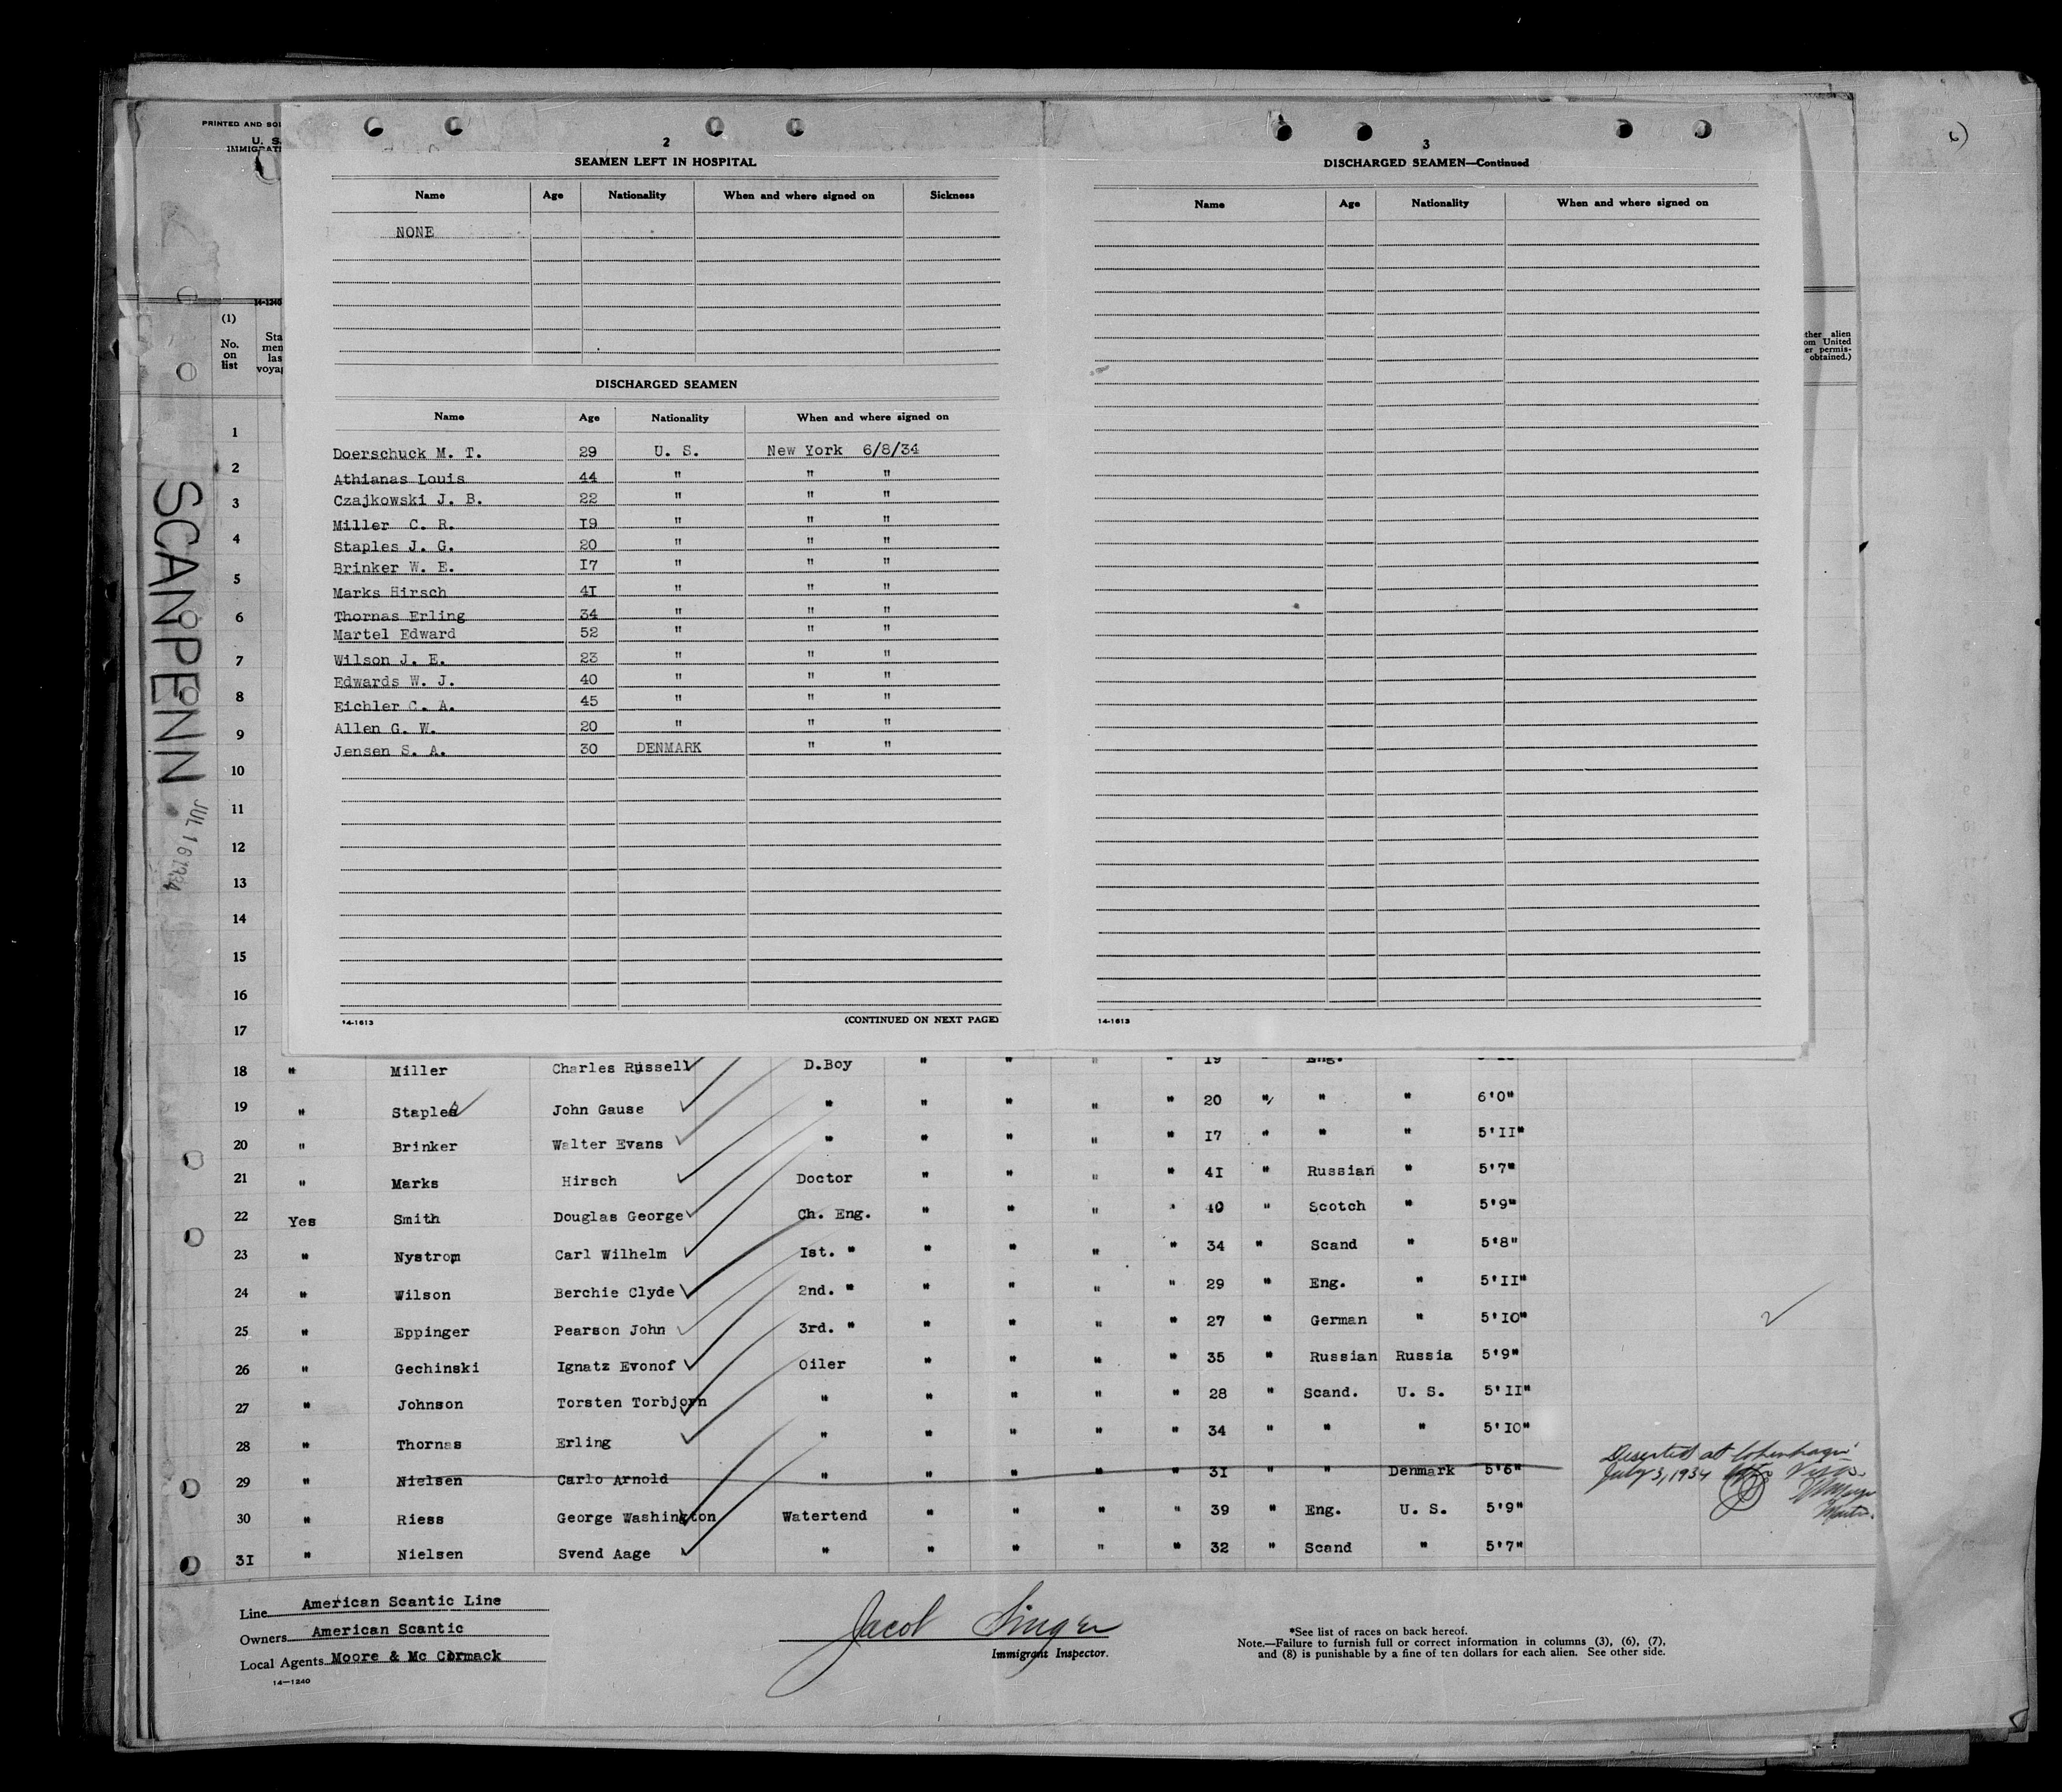 6)
PRINTED AND SOL
U. S.
IMMIGRATI
2
SEAMEN LEFT IN HOSPITAL
Name Age Nationality When and where signed on Sickness
NONE
DISCHARGED SEAMEN
Name Age Nationality When and where signed on
Doerschuck M. T. 29 U. S. New York 6/8/34
Athianas Louis 44 " " "
Czajkowski J. B. 22 " " "
Miller C. R. I9 " " "
Staples J. G. 20 " " "
Brinker W. E. I7 " " "
Marks Hirsch 4I " " "
Thornas Erling 34 " " "
Martel Edward 52 " " "
Wilson J. E. 23 " " "
Edwards W. J. 40 " " "
Eichler C. A. 45 " " "
Allen G. W. 20 " " "
Jensen S. A. 30 DENMARK " "
14-1613 (CONTINUED ON NEXT PAGE)
3
DISCHARGED SEAMEN—Continued
Name Age Nationality When and where signed on
14-1613
14-1240
(1)
No.
on
list
Sta
men
las
voyag
ther alien
om United
er permis-
obtained.)
SCANPENN
JUL 16 1934
1
2
3
4
5
6
7
8
9
10
11
12
13
14
15
16
17
18 " Miller Charles Russell D.Boy " " " " I9 " Eng.
19 " Staples John Gause " " " " " 20 " " " 6'0"
20 " Brinker Walter Evans " " " " " I7 " " " 5'II"
21 " Marks Hirsch Doctor " " " " 4I " Russian " 5'7"
22 Yes Smith Douglas George Ch. Eng. " " " " 40 " Scotch " 5'9"
23 " Nystrom Carl Wilhelm Ist. " " " " " 34 " Scand " 5'8"
24 " Wilson Berchie Clyde 2nd. " " " " " 29 " Eng. " 5'II"
25 " Eppinger Pearson John 3rd. " " " " " 27 " German " 5'IO"
26 " Gechinski Ignatz Evonof Oiler " " " " 35 " Russian Russia 5'9"
27 " Johnson Torsten Torbjorn " " " " " 28 " Scand. U. S. 5'II"
28 " Thornas Erling " " " " " 34 " " " 5'IO"
29 " Nielsen Carlo Arnold " " " " " 3I " " Denmark 5'6"
Deserted at Copenhagen
July 3, 1934
30 " Riess George Washington Watertend " " " " 39 " Eng. U. S. 5'9"
3I " Nielsen Svend Aage " " " " " 32 " Scand " 5'7"
Line American Scantic Line
Owners American Scantic
Local Agents Moore & Mc Cormack
14—1240
Jacob Singer
Immigrant Inspector.
*See list of races on back hereof.
Note.—Failure to furnish full or correct information in columns (3), (6), (7),
and (8) is punishable by a fine of ten dollars for each alien. See other side.